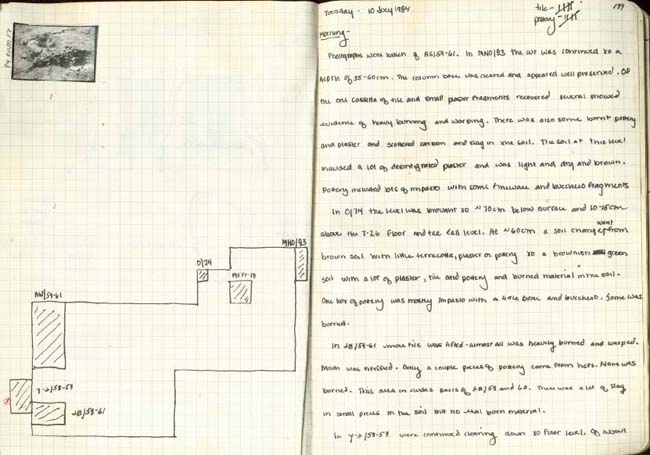 O/74
MNO/83
AA/77-78
AA/59-61
Y-Z/58-59
2B/59-61
Tuesday - 10 July 1984
tile -
pottery -
199
Morning -
Photographs were taken of AG/59-61. In MNO/83 the wt was continued to a
depth of 55-60cm. The column base was cleared and appeared well preserved. Of
the one cassetta of tile and small plaster fragments recovered several showed
evidence of heavy burning and warping. There was also some burnt pottery
and plaster and scattered carbon and slag in the soil. The soil at this level
included a lot of disintegrated plaster and was light and dry and brown.
Pottery included lots of impasto with some fineware and bucchero fragments
In O/74 the level was brought to ~70cm below surface and 10-15cm
above the T-26 floor and tile fall level. At ~60cm a soil change went from
brown soil with little terracotta, plaster or pottery to a brownish green
soil with a lot of plaster, tile and pottery and burned material in the soil.
One box of pottery was mostly impasto with a little bone and bucchero. Some was
burned.
In 2B/59-61 more tile was lifted - almost all was heavily burned and warped.
Much was vitrified. Only a couple pieces of pottery came from here. None was
burned. This area includes parts of 2B/59 and 60. There was a lot of slag
in small pieces in the soil but no real burn material.
In Y-Z/58-59 work continued clearing down to floor level. Of about